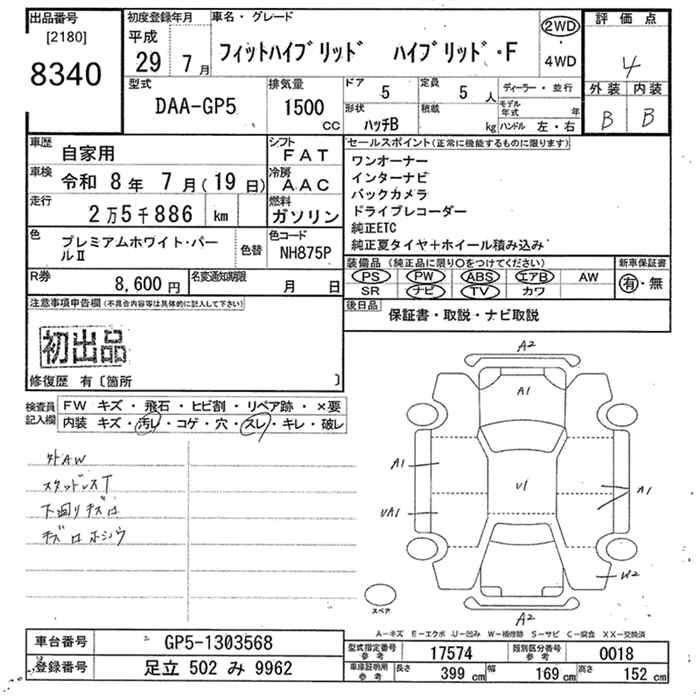 出品番号
[2180]
8340
初度登録年月
平成
29年 7月
車名・グレード
フィットハイブリッド ハイブリッド・F
2WD
・
4WD
評価点
4
外装 内装
B B
型式
DAA-GP5
排気量
1500
CC
ドア
5
定員
5人
形状
ハッチB
積載
kg
ディーラー・並行
モデル年式 年
ハンドル 左・右
車歴
自家用
シフト
FAT
車検
令和 8年 7月(19日)
冷房
AAC
走行
2万5千886 km
燃料
ガソリン
色
プレミアムホワイト・パールⅡ
色替
色コード
NH875P
R券
8,600円
名変通知期限
月 日
セールスポイント(正常に機能するものに限ります)
ワンオーナー
インターナビ
バックカメラ
ドライブレコーダー
純正ETC
純正夏タイヤ+ホイール積み込み
装備品(純正品に限り○をつけてください)
PS PW ABS エアB AW
SR ナビ TV カワ
新車保証書
有・無
後日品
保証書・取説・ナビ取説
注意事項申告欄(不具合内容等は具体的に記入して下さい)
初出品
修復歴 有〔箇所 〕
検査員記入欄
FW キズ・飛石・ヒビ割・リペア跡・×要
内装 キズ・汚レ・コゲ・穴・スレ・キレ・破レ
外AW
スタッドレスT
下回りキズロ
キズロホシュウ
A2
A1
A1
U1
A1
UA1
U2
A2
スペア
A-キズ E-エクボ U-凹み W-補修跡 S-サビ C-腐食 XX-交換済
車台番号
GP5-1303568
登録番号
足立 502 み 9962
型式指定番号参考
17574
類別区分番号参考
0018
車庫証明用参考
長さ 399cm 幅 169cm 高さ 152cm